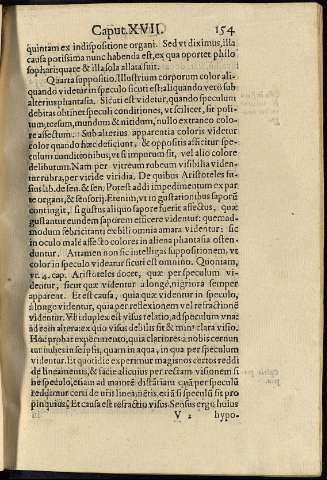 Caput. XVII. 154
quintam ex indispositione organi. Sed vt diximus, illa
causa potissima nunc habenda est, ex qua oportet philo
sophari: quare & illa sola allata fuit.
Quarta suppositio. Illustrium corporum color ali-
quando videtur in speculo sicuti est: aliquando verò sub
alterius phantasia. Sicuti est videtur, quando speculum
debitas obtinet speculi conditiones, vt scilicet, sit poli-
tum, tersum, mundum & nitidum, nullo extraneo colo-
re affectum. Sub alterius apparentia coloris videtur
color quando hæc deficiunt, & oppositis afficitur spe-
culum conditionibus, vt si impurum sit, vel alio colore
delibutum. Nam per vitreum robeum visibilia viden-
tur rubra, per viride viridia. De quibus Aristoteles
sus lib. de sen. & sen. Potest addi impedimentum ex par
te organi, & sensorij. Etenim, vt in gustationibus
contingit, si gustus aliquo sapore fuerit affectus, quæ
gustantur eundem saporem efficere videntur: quemad-
modum febricitanti ex bili omnia amara videntur: sic
in oculo malè affecto colores in aliena phantasia osten-
duntur. Attamen non sic intelligas suppositionem, vt
color in speculo videatur sicuti est omnino. Quoniam,
4. cap. Aristoteles docet, quæ per speculum vi-
dentur, sicut quæ videntur à longè, nigriora semper
apparent. Et est causa, quia quæ videntur in speculo,
à longè videntur, quia per reflexionem vel refractionē
videntur. Vel duplex est visus relatio, ad speculum vna:
ad rem altera: ex quo visus debilis sit & minº clara visio.
Hoc probat experimento, quia clariores à nobis cernun
tur nubes in seipsis, quam in aqua, in qua per speculum
videntur. Et quotidie experimur magis nos certos reddi
de lineamentis, & facie alicuius per rectam visionem si
ne speculo, etiam ad maiorē distātiam quā per speculū
reddimur certi de lineamētis, etiā si speculū sit pro
pinquius. Et causa est refractio visus. Sensus ergo huius
V 2 hypo-